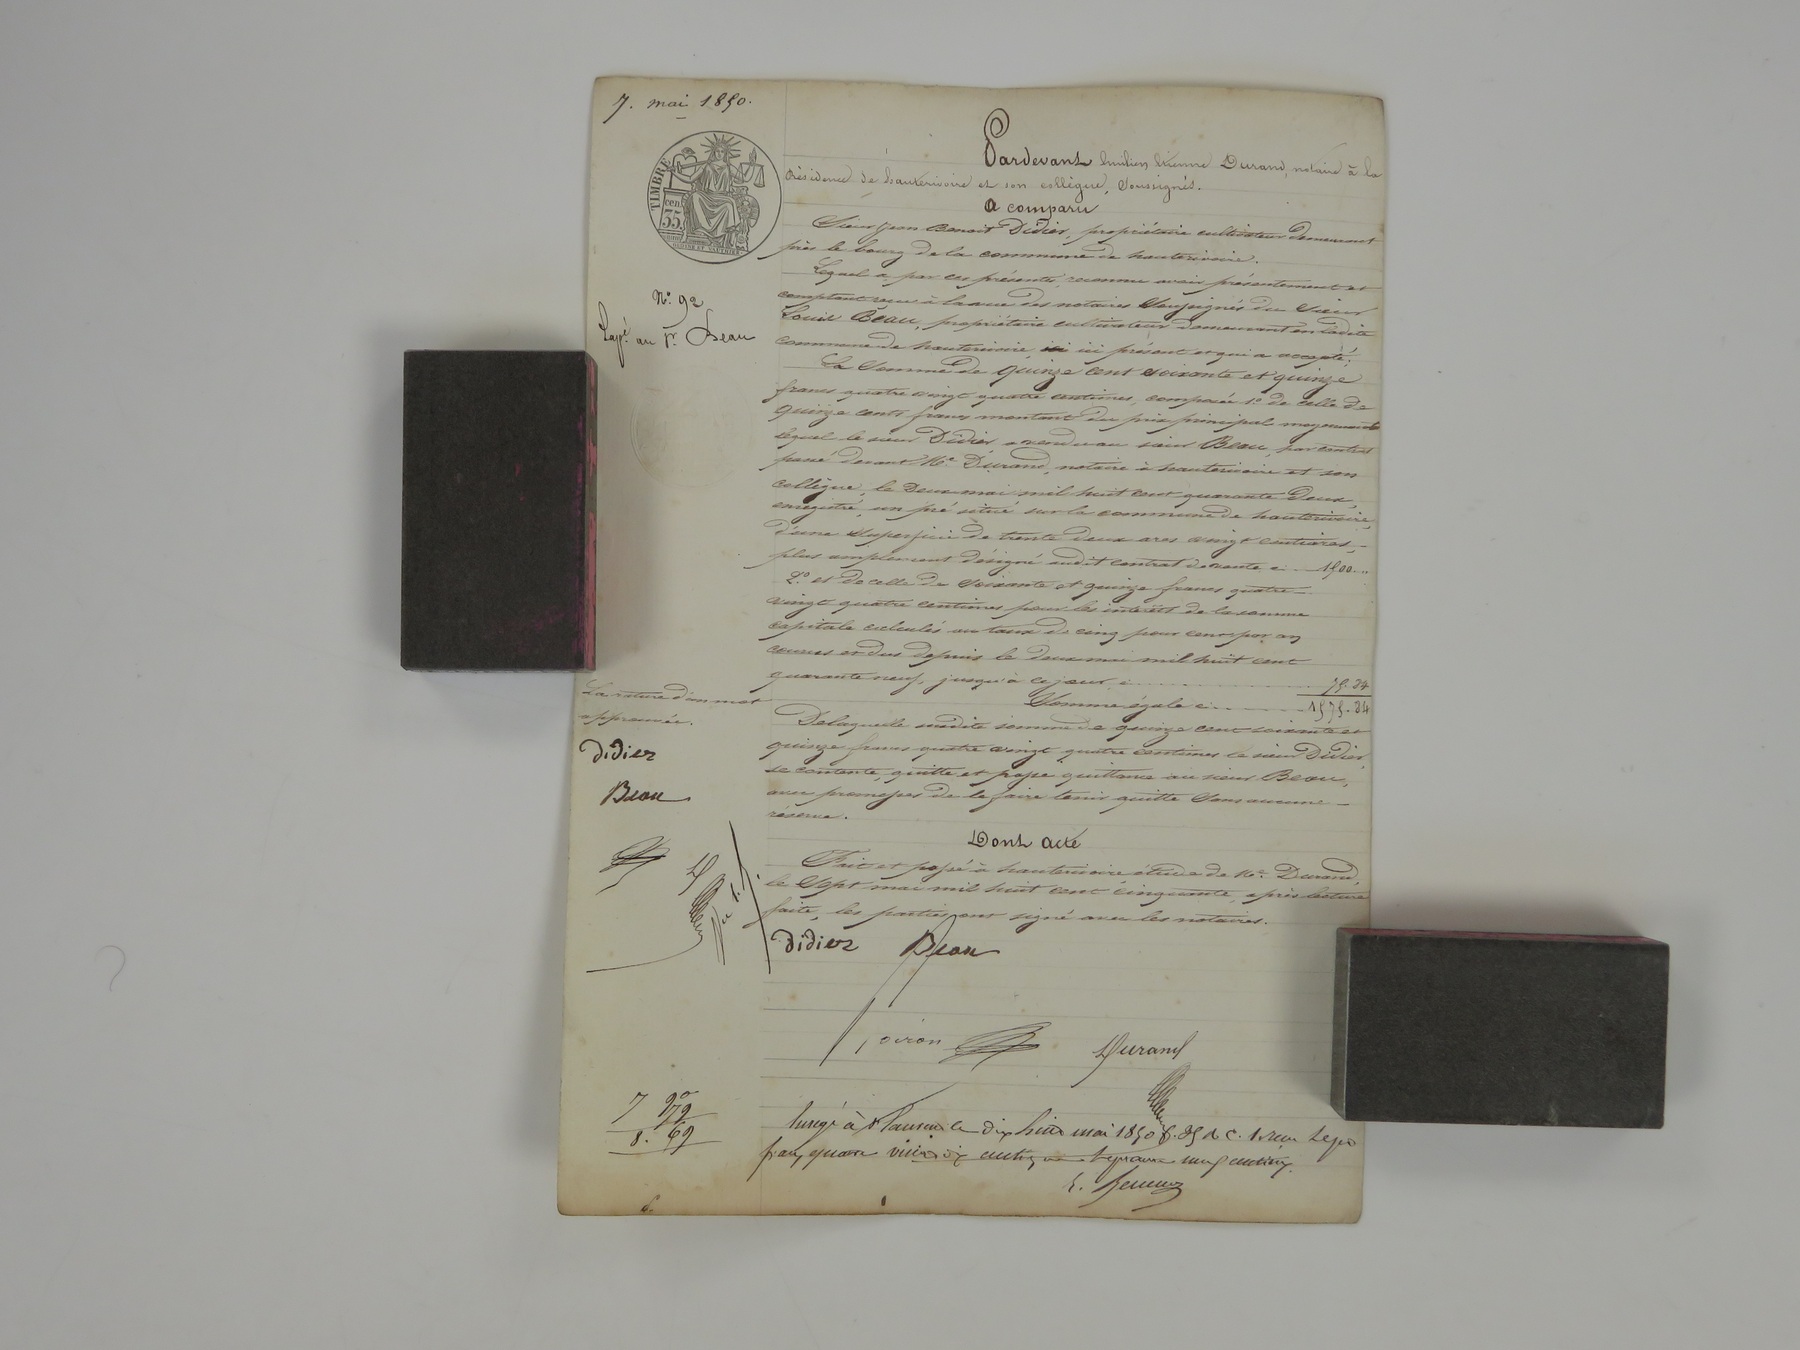 7. mai 1850.
TIMBRE
cen.
35
Pardevant Emilien Etienne Durand, notaire à la
résidence de hauterivoire et son collègue, Soussignés.
a comparu
Sieur Jean Benoit Didier, propriétaire cultivateur demeurant
près le bourg de la commune de hauterivoire.
Lequel a par ces présentes, reconnu avoir présentement et
comptant reçu à la vue des notaires Soussignés du Sieur
Louis Beau, propriétaire cultivateur demeurant en ladite
commune de hauterivoire ici présent et qui a accepté;
La Somme de quinze cent soixante et quinze
francs quatre vingt quatre centimes, composée 1º de celle de
quinze cents francs montant du prix principal moyennant
lequel le sieur Didier a vendu au sieur Beau, par contrat
passé devant Me Durand, notaire à hauterivoire et son
collègue, le Deux mai mil huit cent quarante Deux,
enregistré, un pré situé sur la commune de hauterivoire,
d'une Superficie de trente deux ares vingt centiares,
plus amplement désigné audit contrat de vente ci 1500..
2º et de celle de Soixante et quinze francs quatre
vingt quatre centimes pour les intérêts de la somme
capitale calculés au taux de cinq pour cent par an
courus et dus depuis le deux mai mil huit cent
quarante neuf, jusqu'à ce jour, ci 75.84
Somme égale ci 1575.84
De laquelle susdite somme de quinze cent soixante et
quinze francs quatre vingt quatre centimes le sieur Didier
se contente, quitte et passe quittance au sieur Beau,
avec promesses de le faire tenir quitte Sans aucune
réserve.
Dont acte
Fait et passé à hauterivoire étude de Me Durand,
le Sept mai mil huit cent cinquante, après lecture
faite, les parties ont signé avec les notaires.
didier Beau
Durand
Nº 92
Exp. au Sr Beau
La rature d'un mot
approuvée.
didier
Beau
7 92
8. 69
Enregé à St Laurent le dix huit mai 1850 f. 85 R c. 1. reçu Sept
francs